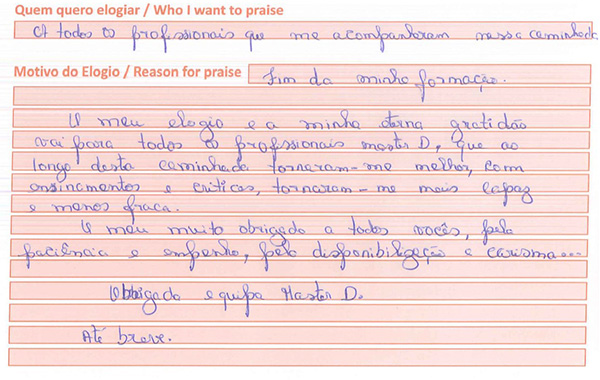 Quem quero elogiar / Who I want to praise
A todos os profissionais que me acompanharam nessa caminhada
Motivo do Elogio / Reason for praise Fim da minha formação.
O meu elogio e a minha eterna gratidão
vai para todos os profissionais master D, que ao
longo desta caminhada tornaram-me melhor, com
ensinamentos e criticas, tornaram-me mais capaz
e menos fraca.
O meu muito obrigado a todos vocês, pela
paciência e empenho, pela disponibilização e carisma...
Obrigado equipa Master D.
Até breve.